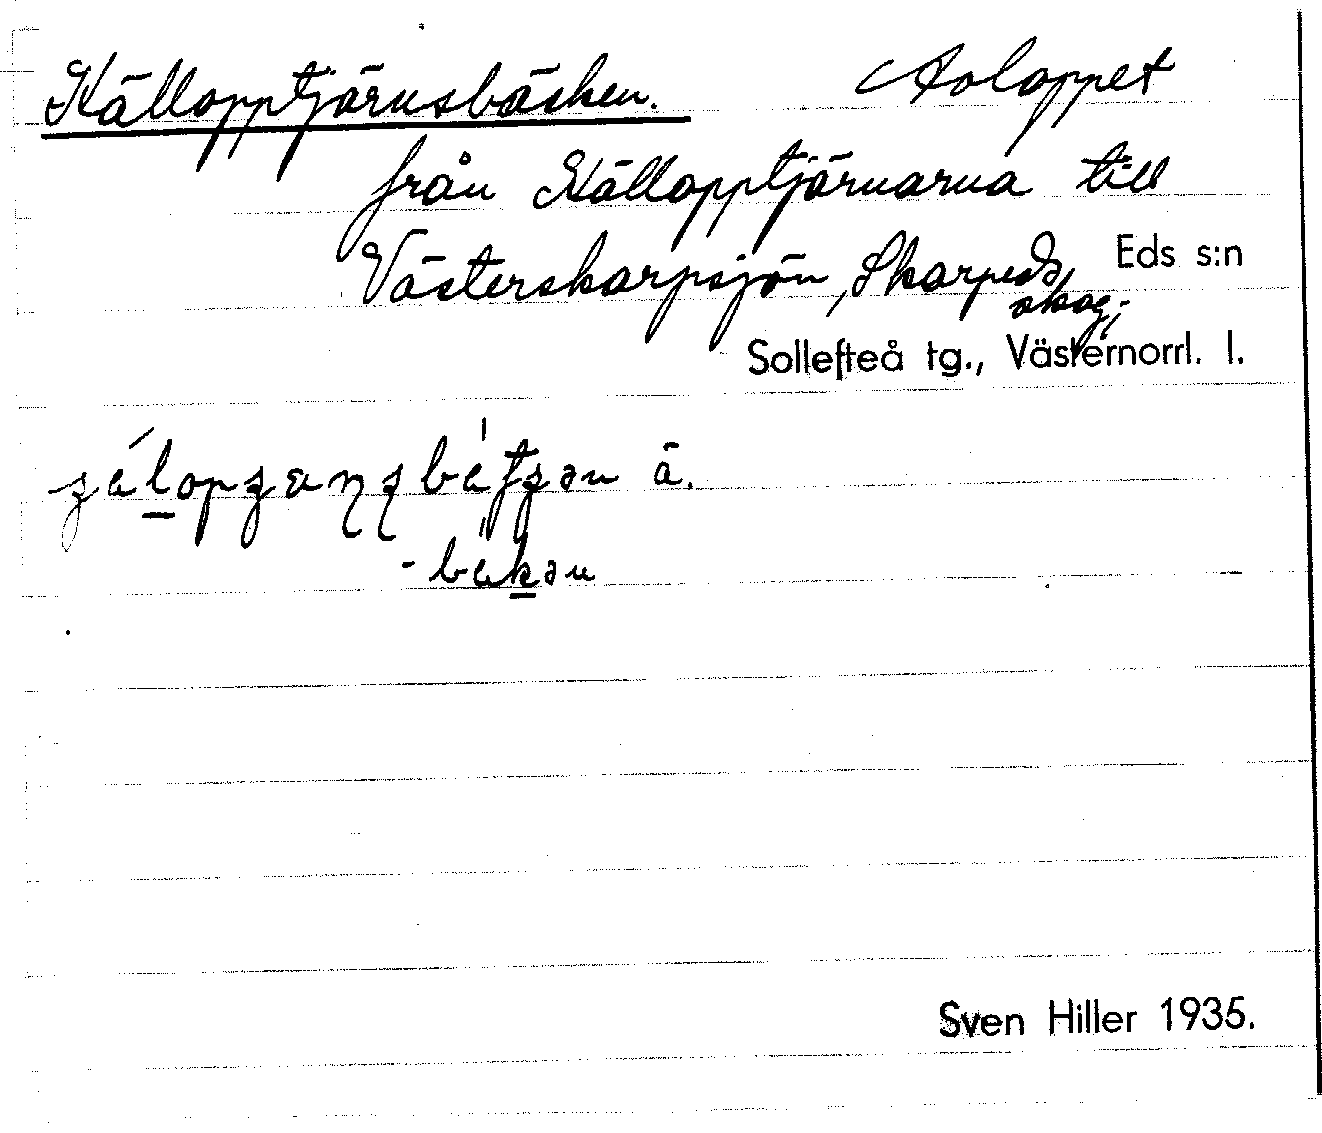 Källopptjärnsbäcken. Avloppet
från Källopptjärnarna till
Västerskarpsjön, Skarpeds Eds s:n
skog;
Sollefteå tg., Västernorrl. l.
å.
Sven Hiller 1935.